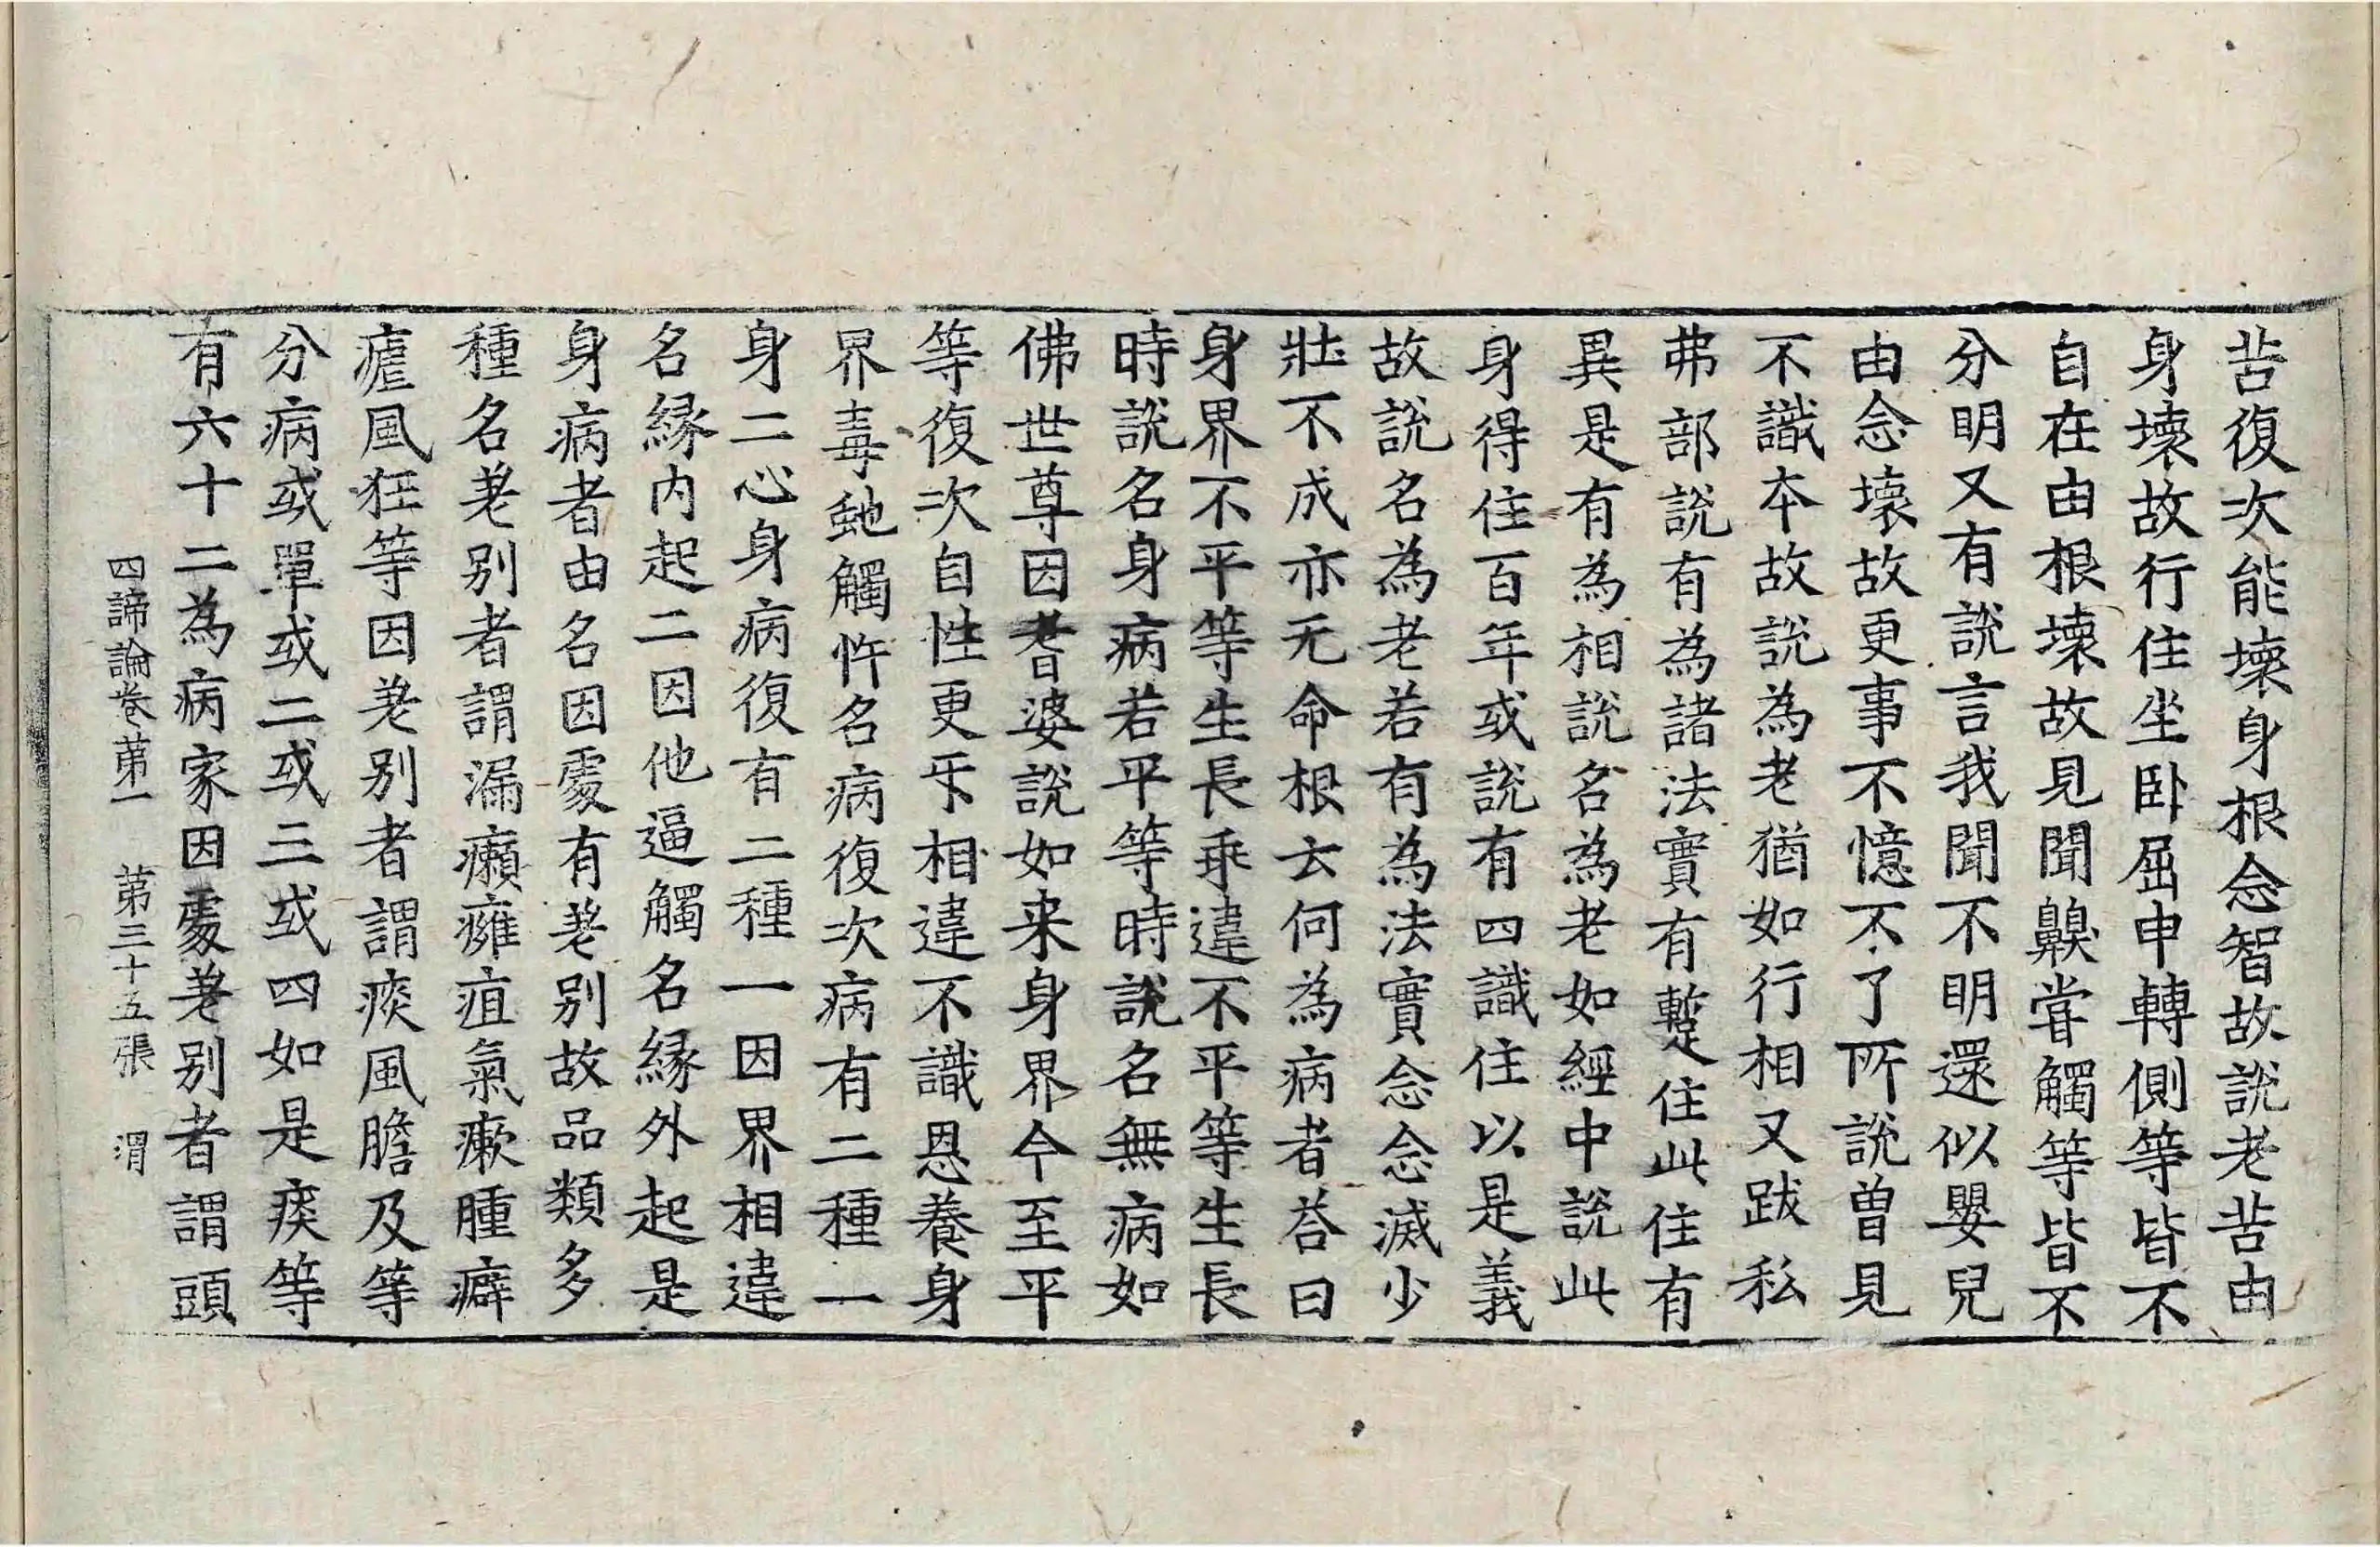 苦復次能壞身根念智故說老苦由
身壞故行住坐卧屈申轉側等皆不
自在由根壞故見聞齅甞觸等皆不
分明又有說言我聞不明還似嬰兒
由念壞故更事不憶不了所說曾見
不識本故說為老猶如行相又跋私
弗部說有為諸法實有蹔住此住有
異是有為相說名為老如經中說此
身得住百年或說有四識住以是義
故說名為老若有為法實念念滅少
壯不成亦无命根云何為病者荅曰
身界不平等生長乖違不平等生長
時說名身病若平等時說名無病如
佛世尊因耆婆說如来身界今至平
等復次自性更㸦相違不識恩養身
界毒虵觸忤名病復次病有二種一
身二心身病復有二種一因界相違
名緣内起二因他逼觸名緣外起是
身病者由名因處有差别故品類多
種名差别者謂漏癩癰疽氣瘶腫癖
瘧風狂等因差别者謂痰風膽及等
分病或單或二或三或四如是痰等
有六十二為病家因處差别者謂頭
四諦論卷第一 第三十五張 渭